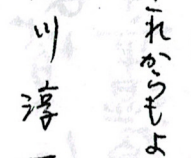 これからもよ
川淳